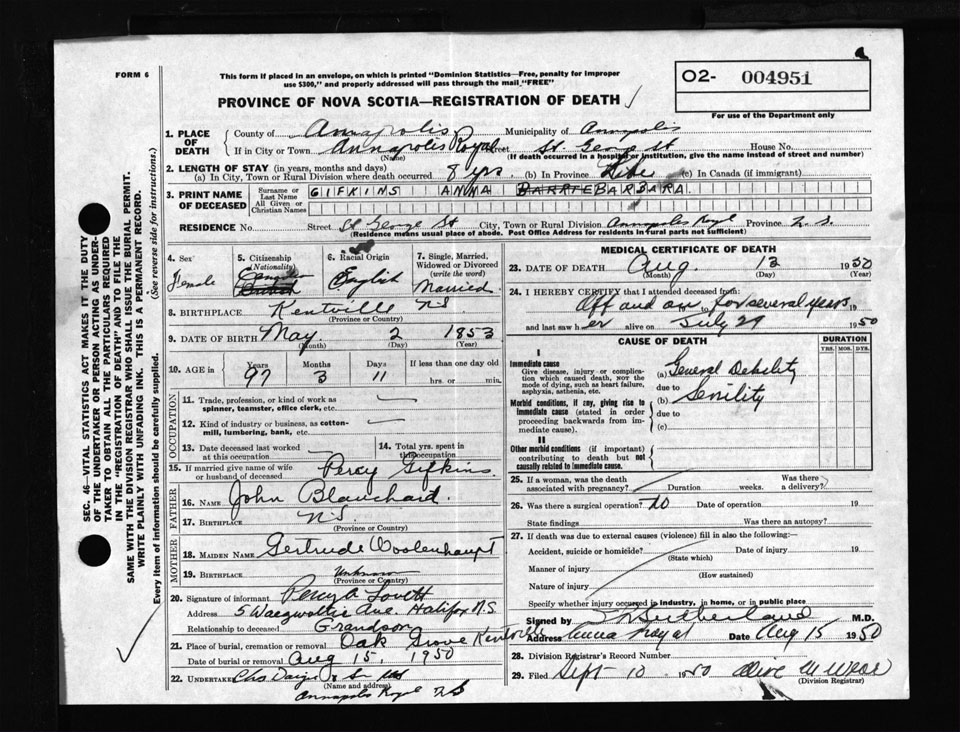 FORM 6
This form if placed in an envelope, on which is printed "Dominion Statistics—Free, penalty for improper
use $300," and properly addressed will pass through the mail "FREE"
PROVINCE OF NOVA SCOTIA—REGISTRATION OF DEATH
O2- 004951
For use of the Department only
1. PLACE OF DEATH County of Annapolis Municipality of Annapolis
If in City or Town Annapolis Royal Street St. George St House No.
(Name) (If death occurred in a hospital or institution, give the name instead of street and number)
2. LENGTH OF STAY (in years, months and days)
(a) In City, Town or Rural Division where death occurred 8 yrs (b) In Province Life (c) In Canada (if immigrant)
3. PRINT NAME OF DECEASED Surname or Last Name GIFKINS ANNA BARBARA
All Given or Christian Names
RESIDENCE No. Street St George St City, Town or Rural Division Annapolis Royal Province N.S.
(Residence means usual place of abode. Post Office Address for residents in rural parts not sufficient)
4. Sex Female
5. Citizenship (Nationality)
6. Racial Origin English
7. Single, Married, Widowed or Divorced (write the word) Married
8. BIRTHPLACE Kentville NS
(Province or Country)
9. DATE OF BIRTH May 2 1853
(Month) (Day) (Year)
10. AGE in Years Months Days If less than one day old
97 3 11 hrs. or min.
OCCUPATION
11. Trade, profession, or kind of work as spinner, teamster, office clerk, etc.
12. Kind of industry or business, as cotton-mill, lumbering, bank, etc.
13. Date deceased last worked at this occupation
14. Total yrs. spent in this occupation
15. If married give name of wife or husband of deceased Percy Gifkins
FATHER
16. Name John Blanchard.
17. Birthplace N.S.
(Province or Country)
MOTHER
18. Maiden Name Gertrude Woolenhaupt
19. Birthplace Unknown
(Province or Country)
20. Signature of informant Percy A Lovett
Address 5 Waegwoltic Ave. Halifax N.S
Relationship to deceased Grandson
21. Place of burial, cremation or removal Oak Grove Kentville
Date of burial or removal Aug 15, 1950
22. Undertaker
(Name and address)
Annapolis Royal N S
MEDICAL CERTIFICATE OF DEATH
23. DATE OF DEATH Aug. 13 1950
(Month) (Day) (Year)
24. I HEREBY CERTIFY that I attended deceased from:
Off and on for several years 19
and last saw her alive on July 29 1950
CAUSE OF DEATH DURATION
YRS. MOS. DYS.
I
Immediate cause
Give disease, injury or complication which caused death, not the mode of dying, such as heart failure, asphyxia, asthenia, etc.
(a) General Debility
due to
Morbid conditions, if any, giving rise to immediate cause (stated in order proceeding backwards from immediate cause).
(b) Senility
due to
(c)
II
Other morbid conditions (if important) contributing to death but not causally related to immediate cause.
25. If a woman, was the death associated with pregnancy? Duration weeks. Was there a delivery?
26. Was there a surgical operation? No Date of operation 19
State findings Was there an autopsy?
27. If death was due to external causes (violence) fill in also the following:—
Accident, suicide or homicide? Date of injury 19
(State which)
Manner of injury
(How sustained)
Nature of injury
Specify whether injury occurred in industry, in home, or in public place
Signed by Sutherland M.D.
Address Anna Royal Date Aug 15 1950
28. Division Registrar's Record Number
29. Filed Sept 10 1950
(Division Registrar)
SEC. 46—VITAL STATISTICS ACT MAKES IT THE DUTY
OF THE UNDERTAKER OR PERSON ACTING AS UNDER-
TAKER TO OBTAIN ALL THE PARTICULARS REQUIRED
IN THE "REGISTRATION OF DEATH" AND TO FILE THE
SAME WITH THE DIVISION REGISTRAR WHO SHALL ISSUE THE BURIAL PERMIT.
WRITE PLAINLY WITH UNFADING INK. THIS IS A PERMANENT RECORD.
Every item of information should be carefully supplied. (See reverse side for instructions.)